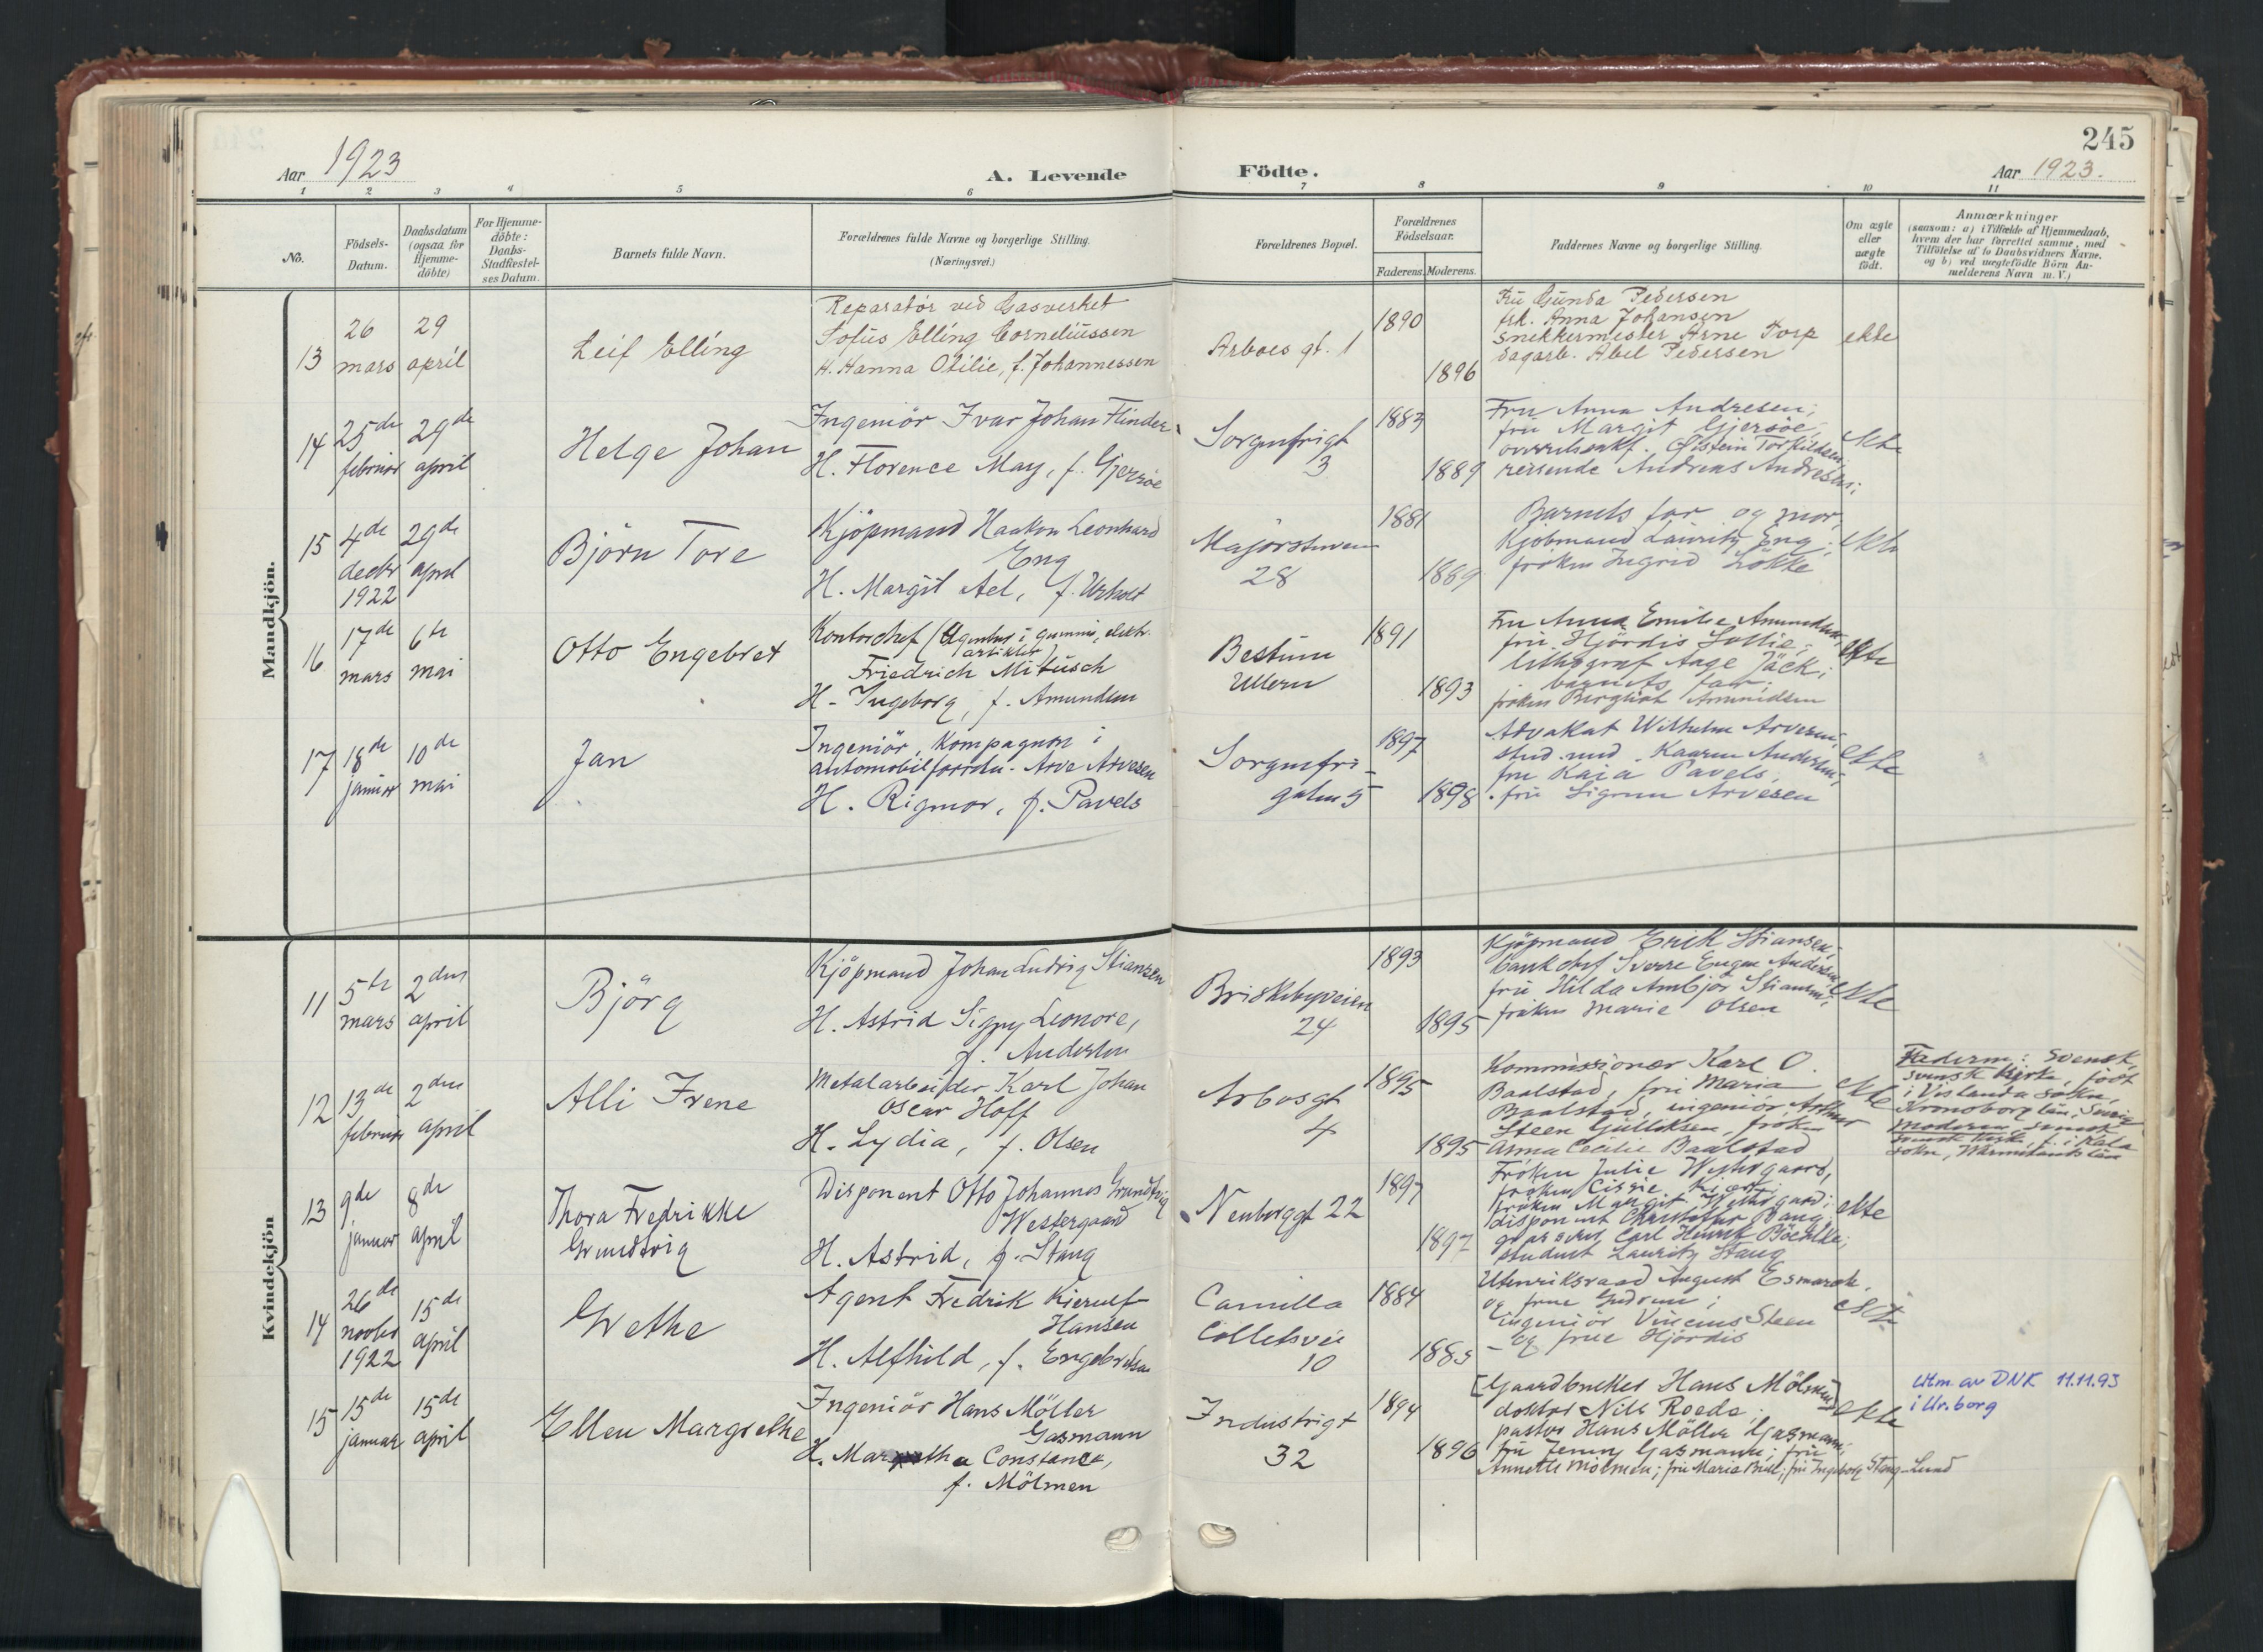 245
Aar 1923
A. Levende Födte.
Aar 1923.
1 2 3 4 5 6 7 8 9 10 11
No.
Födsels-
Datum.
Daabsdatum
(ogsaa for
Hjemme-
döbte)
For Hjemme-
döbte:
Daabs-
Stadfæstel-
ses Datum.
Barnets fulde Navn.
Forældrenes fulde Navne og borgerlige Stilling.
(Næringsvei.)
Forældrenes Bopæl.
Forældrenes
Födselsaar.
Faderens. Moderens.
Faddernes Navne og borgerlige Stilling.
Om ægte
eller
uægte
födt.
Anmærkninger
(saasom: a) i Tilfælde af Hjemmedaab,
hvem der har forrettet samme, med
Tilföielse af to Daabsvidners Navne,
og b) ved uægtefödte Börn An-
melderens Navn m. V.)
Mandkjön.
13
26
mars
29
april
Leif Elling
Reparatör ved Gasverket
Sofus Elling Corneliussen
H. Hanna Otilie, f. Johannessen
Arboes gt. 1
1890
1896
Fru Gunda Pedersen
frk. Anna Johansen
Snekkermester Arne Torp
dagarb. Abel Pedersen
ekte
14
25de
februar
29de
april
Helge Johan
Ingeniör Ivar Johan Flinder
H. Florence May, f. Gjersöe
Sorgenfrigt
3
1883
1889
Fru Anna Andresen;
fru Margit Gjersöe,
overrelsakf. Øistein Torkildsen;
reisende Andreas Andresen;
ekte
15
4de
decbr
1922
29de
april
Björn Tore
Kjöpmand Haakon Leonhard
Eng
H. Margit Ael, f. Urholt
Majorstuveien
28
1881
1889
Barnets far og mor,
Kjöbmand Lauritz Eng;
fröken Ingrid Lökke
ekte
16
17de
mars
6te
mai
Otto Engebret
Kontorchef (Agentur i gummi, elektr.
artikler)
Friedrich Mitusch
H. Ingeborg, f. Amundsen
Bestum
Ullern
1891
1893
Fru Anna Emilie Amundsen,
fru Hjördis Sollie;
lithograf Aage Jäck;
barnets far;
fröken Bergliot Amundsen
ekte
17
18de
januar
10de
mai
Jan
Ingeniör, Kompagnon i
automobilforretn. Arve Arvesen
H. Rigmor, f. Pavels
Sorgenfri-
gaten 5
1897
1898
Advokat Wilhelm Arvesen;
stud. med. Kaaren Andersen;
fru Kaia Pavels;
fru Sigrun Arvesen
ekte
Kvindekjön
11
5te
mars
2den
april
Björg
Kjöpmand Johan Ludvig Stiansen
H. Astrid Signy Leonore,
f. Andersen
Briskebyveien
24
1893
1895
Kjöpmand Erik Stiansen;
bankchef Sverre Eugen Andersen;
fru Hilda Ambjör Stiansen;
fröken Marie Olsen
ekte
12
13de
februar
2den
april
Alli Irene
Metalarbeider Karl Johan
Oscar Hoff
H. Lydia, f. Olsen
Arbosgt
4
1895
1895
Kommissionær Karl O.
Baalstad, fru Maria
Baalstad, ingeniör Arthur
Steen Gulliksen, fröken
Anna Cecilie Baalstad
ekte
Faderen: Svensk,
svensk kirke, född
i Vislanda sokn,
Kronoborg län, Sverig
Moderen, svensk
svensk kirke, f. i Kala
sokn, Wärmelands län
13
9de
januar
8de
april
Thora Fredrikke
Grundtvig
Disponent Otto Johannes Grundtvig
Westergaard
H. Astrid, f. Stang
Neuberggt 22
1897
1897
Fröken Julie Westergaard,
fröken Cissie Kiær;
fröken Margit Westergaard;
disponent Christoffer Bang
grosserer Carl Henrik
student Lauritz Stang
ekte
14
26de
novbr
1922
15de
april
Grethe
Agent Fredrik Kierulf
Hansen
H. Alfhild, f. Engebretsen
Camilla
Colletsvei
10
1884
1885
Utenriksraad August Esmarch
og frue Gudrun;
ingeniör Vincens Steen
- og frue Hjördis
ekte
15
15de
januar
15de
april
Ellen Margrethe
Ingeniör Hans Möller
Gasmann
H. Margretha Constance,
f. Mölmen
Industrigt
32
1894
1896
[Gaardbruker Hans Mölmen]
doktor Nils Roede;
pastor Hans Möller Gasmann;
fru Jenny Gasmann; fru
Annette Mölmen; fru Maria Bull; fru Ingeborg Stang-Lund
ekte
Utm. av DNK 11.11.93
i Ur.borg